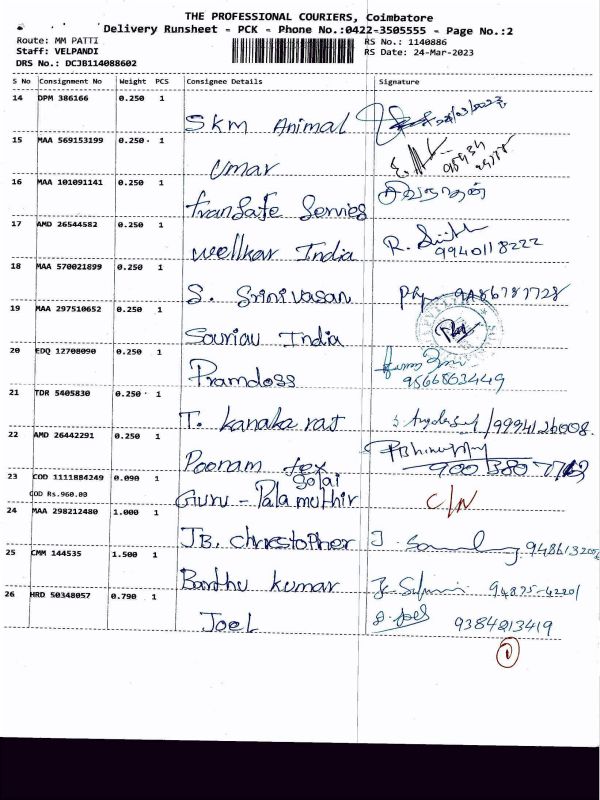 THE PROFESSIONAL COURIERS, Coimbatore
Delivery Runsheet - PCK - Phone No.:0422-3505555 - Page No.:2
Route: MM PATTI RS No.: 1140886
Staff: VELPANDI RS Date: 24-Mar-2023
DRS No.: DCJB114088602
S No Consignment No Weight PCS Consignee Details Signature
14 DPM 386166 0.250 1 SKM Animal
15 MAA 569153199 0.250 1 Umar
16 MAA 101091141 0.250 1 TranSafe Servies சிவநாதன்
17 AMD 26544582 0.250 1 Wellkar India R. 9940118222
18 MAA 570021899 0.250 1 S. Srinivasan 9486787728
19 MAA 297510652 0.250 1 Souriau India
20 EDQ 12708090 0.250 1 Pramdoss 9566863449
21 TDR 5405830 0.250 1 T. kanaka raj /9994126008.
22 AMD 26442291 0.250 1 Poonam tex
23 COD 1111884249 0.090 1 Guru - Palamuthir Solai C/N
COD Rs.960.00
24 MAA 298212480 1.000 1 JB. christopher J.
25 CMM 144535 1.500 1 Banthu kumar 94875-42201
26 HRD 50348057 0.790 1 Joel D. Joel 9384813419